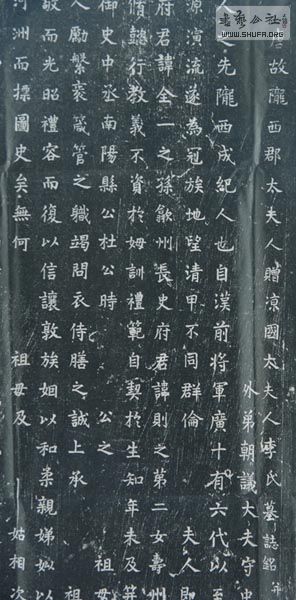 書藝公社
WWW.SHUFA.ORG
故隴西郡太夫人贈涼國太夫人李氏墓誌銘并
外弟朝議大夫守中
之先隴西成紀人也自漢前將軍廣十有六代以至
源演流遂為冠族地望清甲不同群倫 夫人即
府君諱全一之孫歙州長史府君諱則之第二女壽州
脩懿行教義不資於姆訓禮範自契於生知年未及笄
御史中丞南陽縣公杜公時 公之 祖母
人勵繁袠箴管之職竭問衣侍膳之誠上承 祖
敬而光昭禮容而復以信讓敦族姻以和柔親娣姒以
河洲而摽圖史矣無何 祖母及 姑相次